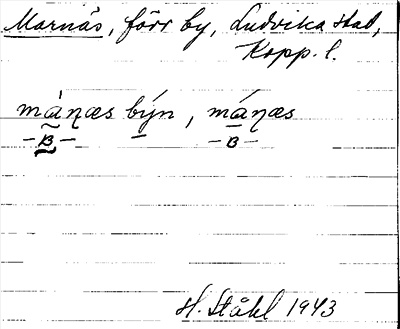 Marnäs, förr by, Ludvika stad,
Kopp. l.
màɳæs býn, máɳæs
–B– –B–
H. Ståhl 1943